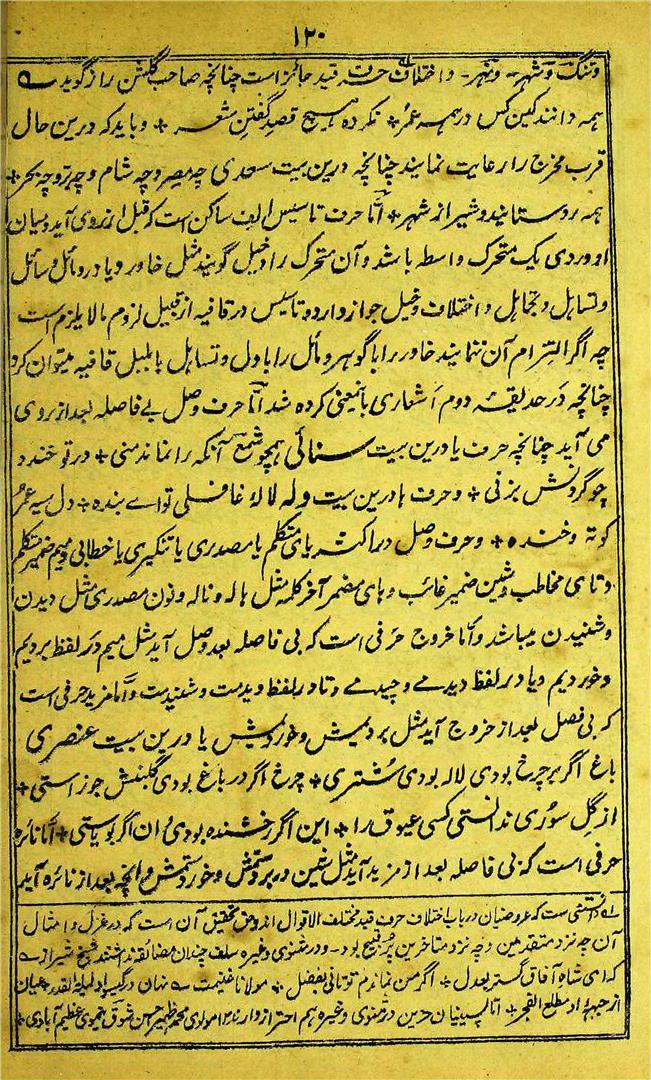 ۱۲۰
و تنگ و شهر و نهر و اختلاف حرف قید جائز است چنانچه صاحب گلشن راز گوید
همه دانند کین کس در همه عمر نکرده هیچ قصد گفتن شعر و باید که درین حال
قرب مخرج را رعایت نمایند چنانچه درین بیت سعدی چه مصر و چه شام و چه بر و چه بحر
همه روستایند و شیراز شهر اما حرف تاسیس الف ساکن است که قبل از روی آید و میان
او و روی یک متحرک واسطه باشد و آن متحرک را دخیل گویند مثل خاور و یاور و مائل و سائل
و تساہل و تجاہل و اختلاف دخیل جواز دارد و تاسیس در قافیه از قبیل لزوم مالا یلزم است
چه اگر التزام آن ننمایند خاور را با گوهر و مائل را با دل و تساہل با بلبل قافیه میتوان کرد
چنانچه در حدیقه دوم اشعاری باینمعنی کرده شد اما حرف وصل بے فاصله بعد از روی
می آید چنانچه حرف یا درین بیت سنائی همچو شمع آنکه را نماند منی در تو خندد
چو گردنش بزنی و حرف ها درین بیت وله لاله غافلی تو اے بنده دل سیه عمر
کوته و خنده و حرف وصل در اکثر یای متکلم یا مصدری یا تنکیری یا خطابی و میم ضمیر متکلم
و تای مخاطب و شین ضمیر غائب و های مضمر آخر کلمه مثل هاله و ناله و نون مصدری مثل دیدن
و شنیدن میباشد و اما خروج حرفی است که بی فاصله بعد وصل آید مثل میم در لفظ بردیم
و خوردیم و یا در لفظ دیدمے و چیدمے و تا در لفظ دیدست و شنیدست و اما مزید حرفی است
که بی فصل بعد از خروج آید مثل بردمیش و خوردمیش یا درین بیت عنصری
باغ اگر بر چرخ بودی لاله بودی مشتری چرخ اگر در باغ بودی گلبنش جوزاستی
از گل سوری ندانستی کسی عیوق را این اگر رخشنده بودی و ان اگر بویاستی اما نائره
حرفی است که بی فاصله بعد از مزید آید مثل شین در بردستمش و خوردستمش و آنچه بعد از نائره آید
دانستنی ست که عروضیان در باب اختلاف حرف قید مختلف الاقوال اند و حق تحقیق آن است که در غزل و امثال
آن چه نزد متقدمین و چه نزد متاخرین پر قبیح بود و در مثنوی و غیره سلف چندان مضائقه نداشتند شیخ شیراز
که ای شاه آفاق گستر بعدل اگر من نماندم تو مانی بفضل مولانا غنیمت نهان در گیسو او لیلة القدر عیان
از جبهه او مطلع الفجر اما پسینیان حزین در مثنوی و غیره هم احتراز دارند مولوی محمد ظهیر احسن شوق نیموی عظیم آبادی